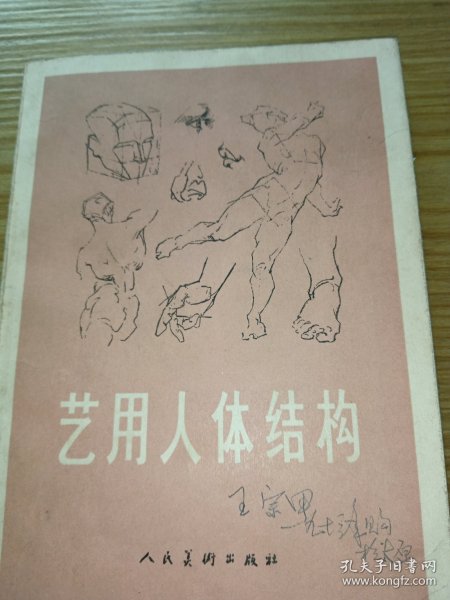 艺用人体结构
王宗
购
人民美術出版社
孔夫子旧书网
www.kongfz.com